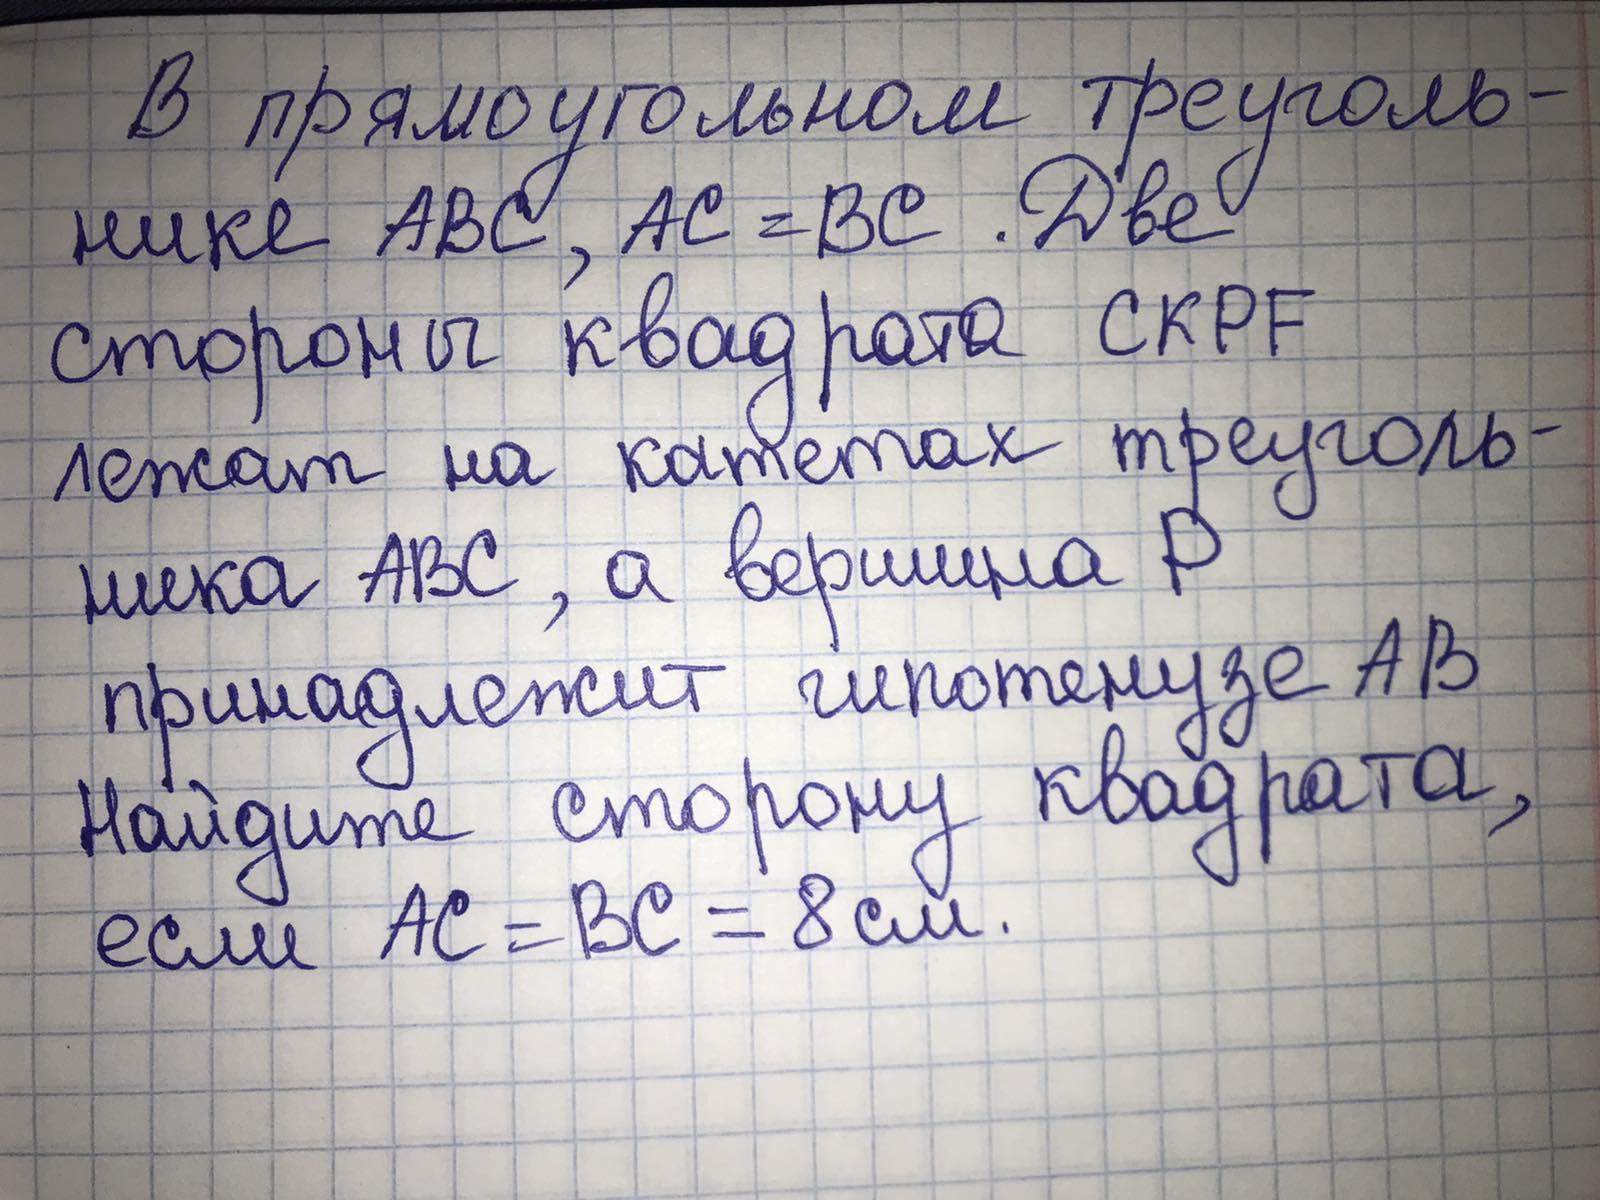 В прямоугольном треуголь-
нике ABC, AC = BC . Две
стороны квадрата CKPF
лежат на катетах треуголь-
ника ABC, а вершина P
принадлежит гипотенузе AB
Найдите сторону квадрата,
если AC = BC = 8 см.